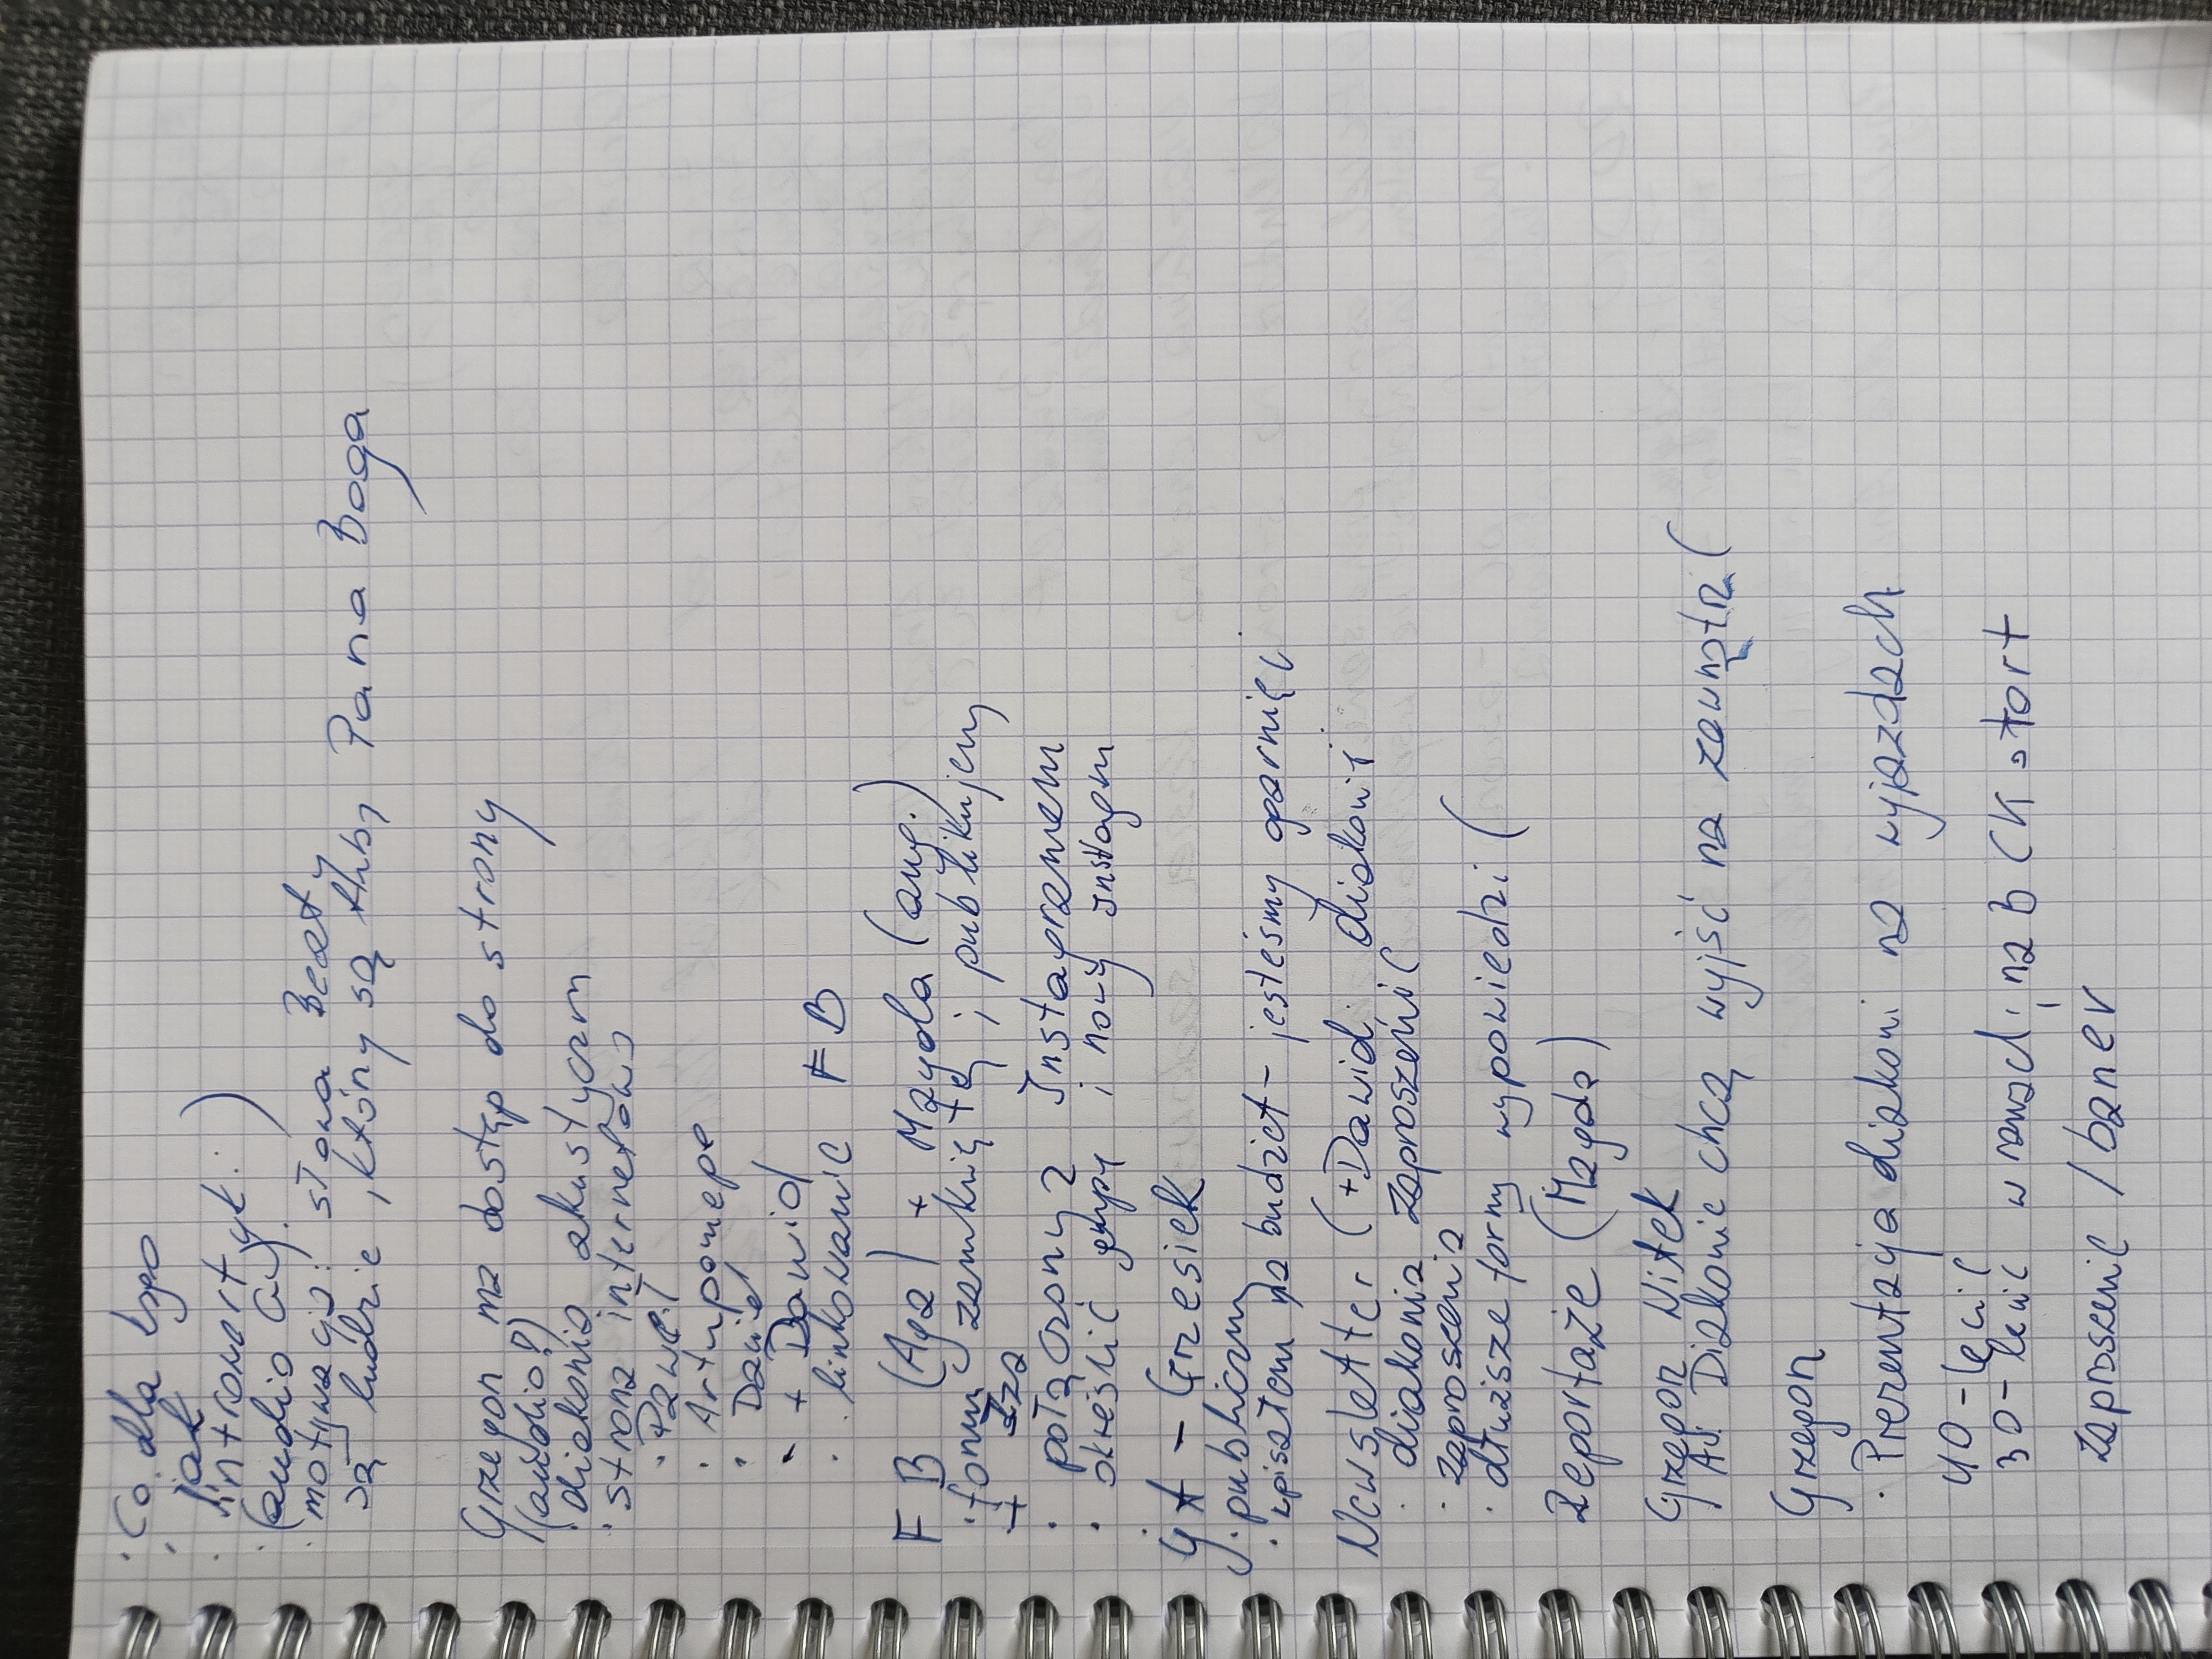 · Co dla kogo
· jak
· introwertyk: )
(audio G).
· motywacja: słowa Beaty
są ludzie, który są Pana Boga
Grzegorz ma dostęp do strony
(audio?)
· diakonia akustyczn
· strona internetowa
· Paweł
· Artupomepe
· Daniel
· + Dawid
· linkowanie FB
FB (Aga) + Magda (ang.)
· forum zamknięte i publikujemy
+ Iza
· połączony z Instagramem
· określić grupę i nowy Instagm
YT - Grzesiek
· publiczny
· wpisałem na budżet - jesteśmy ogarnięci
Newsletter (+Dawid; diakonii
· diakonia zaproszenie
· zaproszenia
· dłuższe formy wypowiedzi (
Reportaże (Magda)
Grzegorz Witek
Ad. Diakonie chcą wyjść na zewnątrz (
Grzegorz
· Prezentacja diakoni na wyjazdach
40-lecie
30-lecie w na BCK tort
zaproszenie / baner